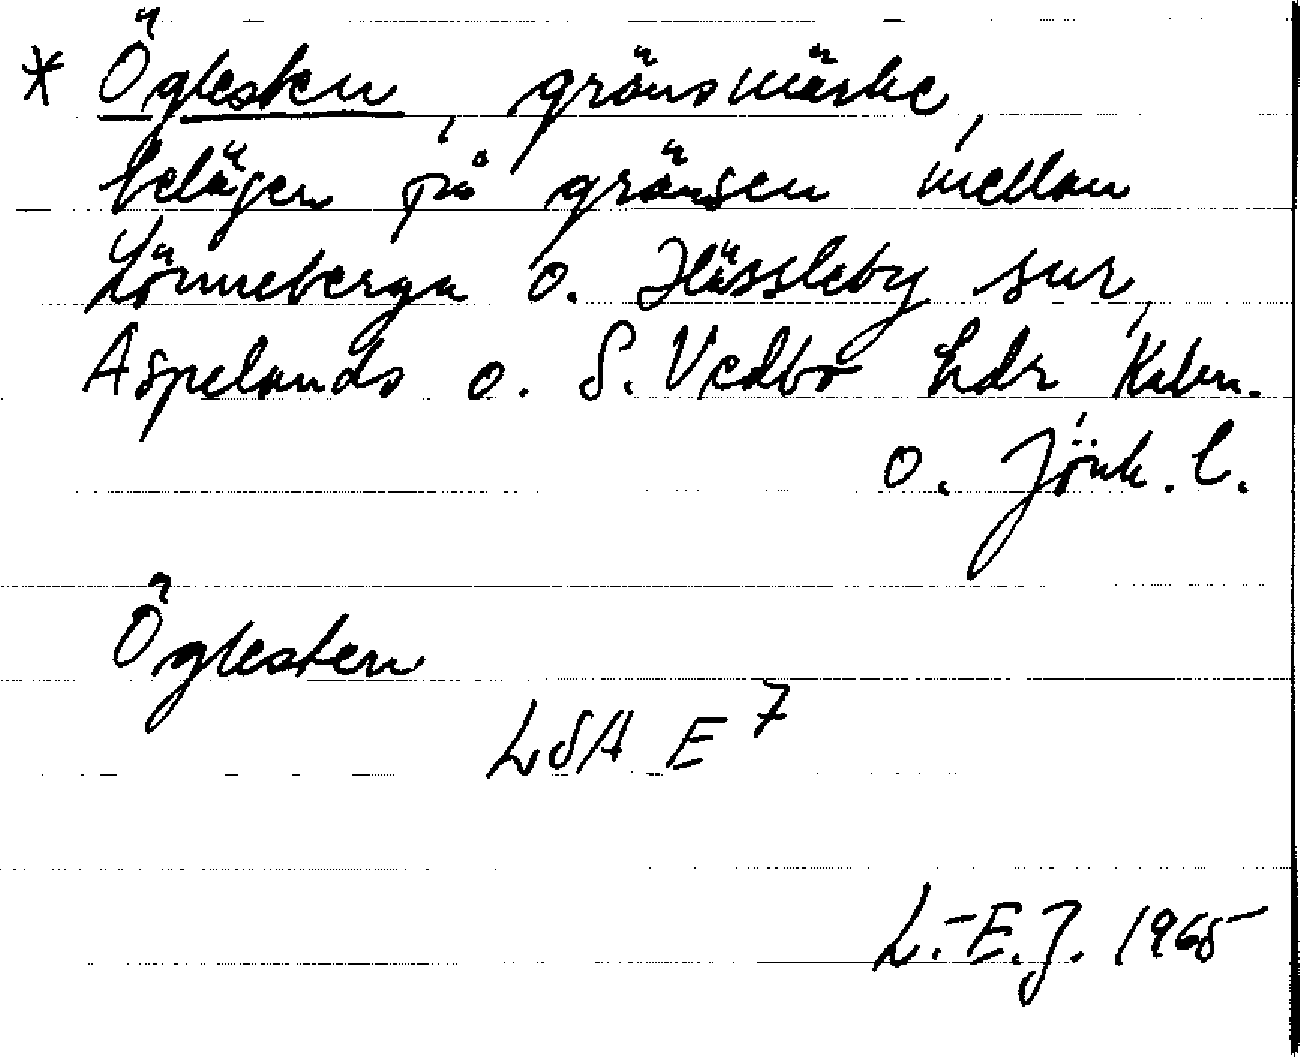 * Öglesten, gränsmärke,
belägen på gränsen mellan
Lönneberga o. Hässleby snr,
Aspelands o. S. Vedbo hdr Kalm.
o. Jönk. l.
Öglesten
LSA E 7
L.-E.J. 1965